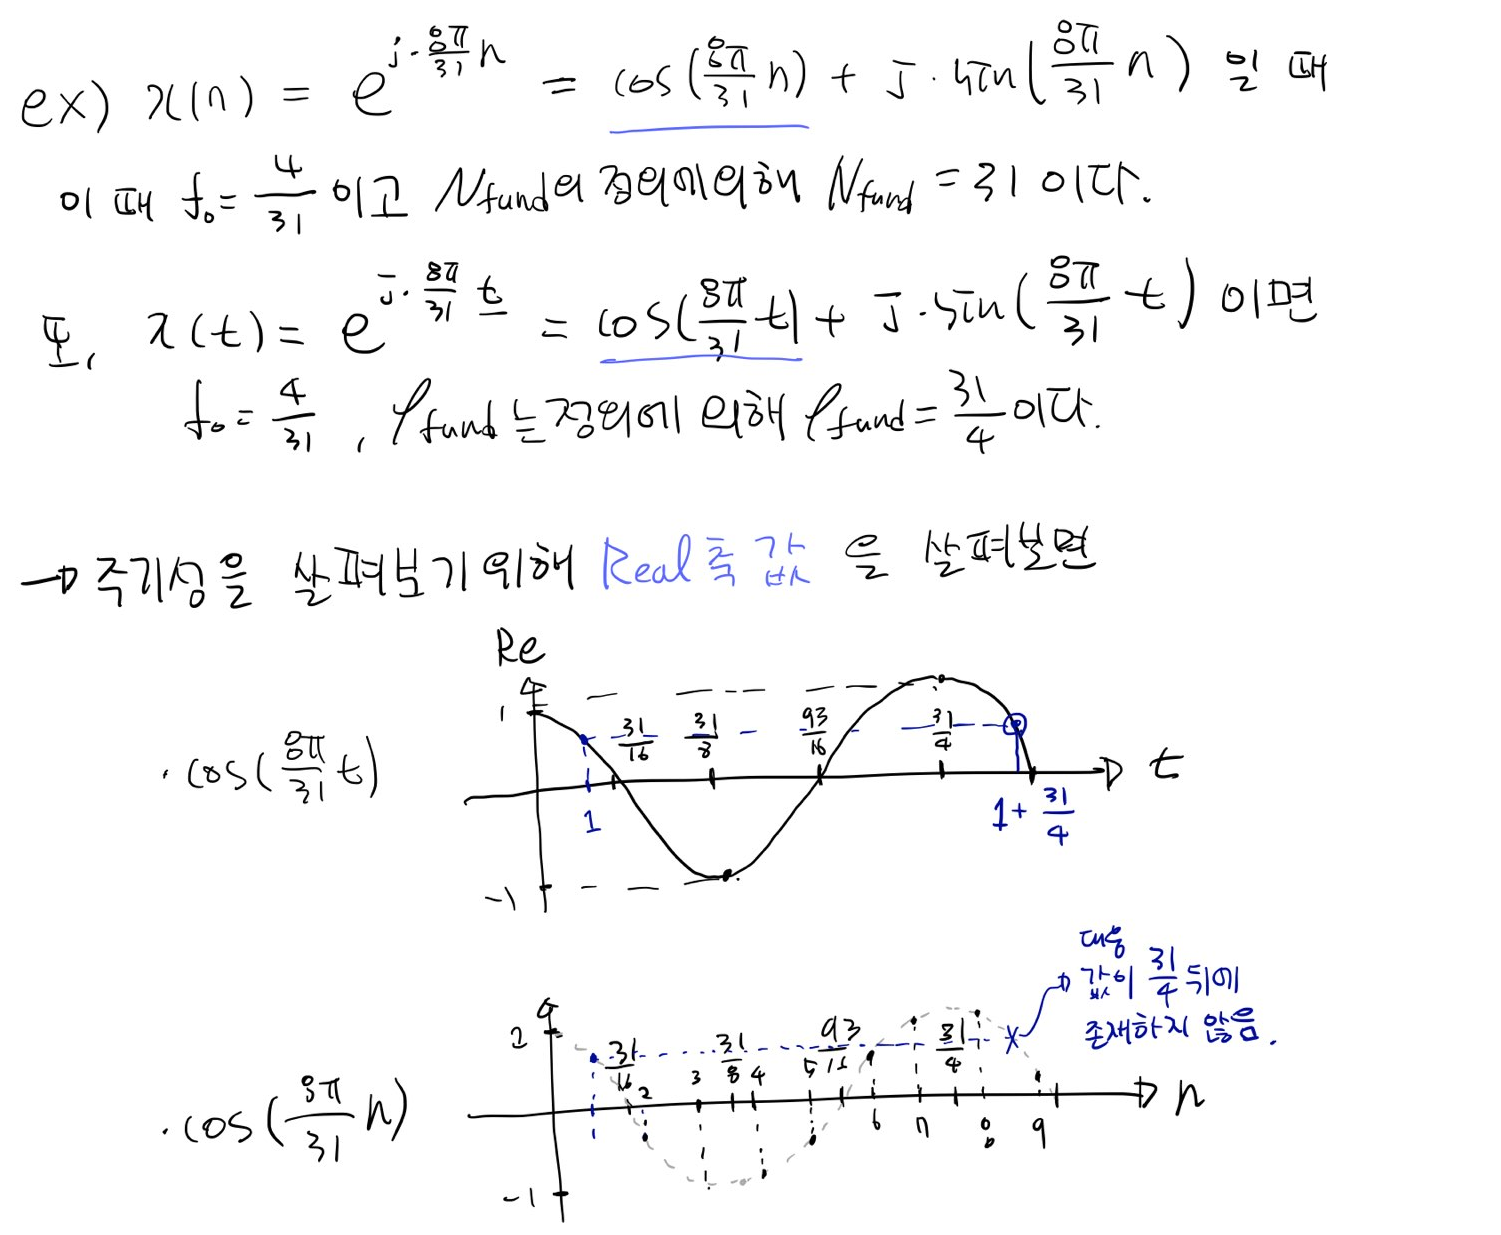 ex) x(n) = e^{j·8π/31 n} = cos(8π/31 n) + j·sin(8π/31 n) 일 때
이 때 f₀ = 4/31 이고 N_fund의 정의에 의해 N_fund = 31 이다.
또, x(t) = e^{j·8π/31 t} = cos(8π/31 t) + j·sin(8π/31 t) 이면
f₀ = 4/31 , P_fund는 정의에 의해 P_fund = 31/4 이다.
→ 주기성을 살펴보기 위해 Real 축 값 을 살펴보면
Re
1
31/16 31/8 93/16 31/4
· cos(8π/31 t)
t
1 1 + 31/4
-1
대응
값이 31/4 뒤에
존재하지 않음.
1
31/16 2 3 31/8 4 5 93/16 31/4
· cos(8π/31 n)
n
6 7 8 9
-1